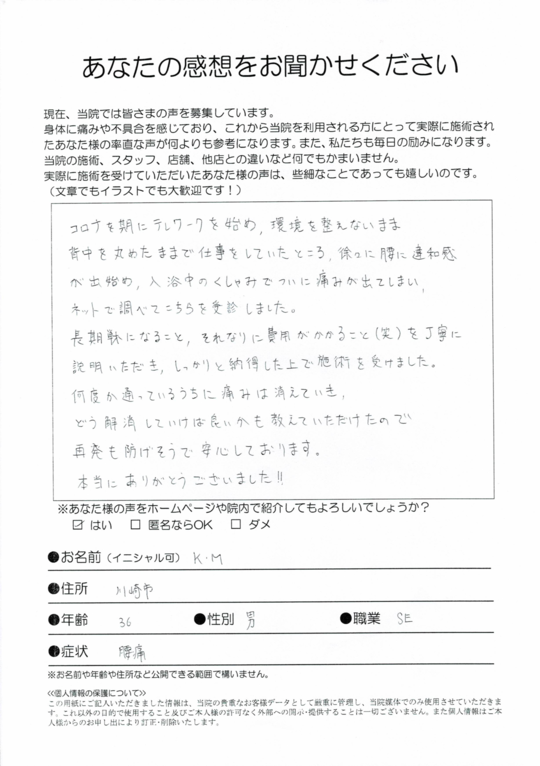 あなたの感想をお聞かせください
現在、当院では皆さまの声を募集しています。
身体に痛みや不具合を感じており、これから当院を利用される方にとって実際に施術され
たあなた様の率直な声が何よりも参考になります。また、私たちも毎日の励みになります。
当院の施術、スタッフ、店舗、他店との違いなど何でもかまいません。
実際に施術を受けていただいたあなた様の声は、些細なことであっても嬉しいのです。
（文章でもイラストでも大歓迎です！）
コロナを期にテレワークを始め，環境を整えないまま
背中を丸めたままで仕事をしていたところ，徐々に腰に違和感
が出始め，入浴中のくしゃみでついに痛みが出てしまい，
ネットで調べてこちらを受診しました。
長期戦になること，それなりに費用がかかること(笑)を丁寧に
説明いただき，しっかりと納得した上で施術を受けました。
何度か通っているうちに痛みは消えていき，
どう解消していけば良いかも教えていただけたので
再発も防げそうで安心しております。
本当にありがとうございました!!
※あなた様の声をホームページや院内で紹介してもよろしいでしょうか？
☑ はい □ 匿名ならOK □ ダメ
●お名前（イニシャル可） K・M
●住所 川崎市
●年齢 36 ●性別 男 ●職業 SE
●症状 腰痛
※お名前や年齢や住所など公開できる範囲で構いません。
≪個人情報の保護について≫
この用紙にご記入いただきました情報は、当院の貴重なお客様データとして厳重に管理し、当院媒体でのみ使用させていただきま
す。これ以外の目的で使用すること及びご本人様の許可なく外部への開示・提供することは一切ございません。また個人情報はご本
人様からのお申し出により訂正・削除いたします。